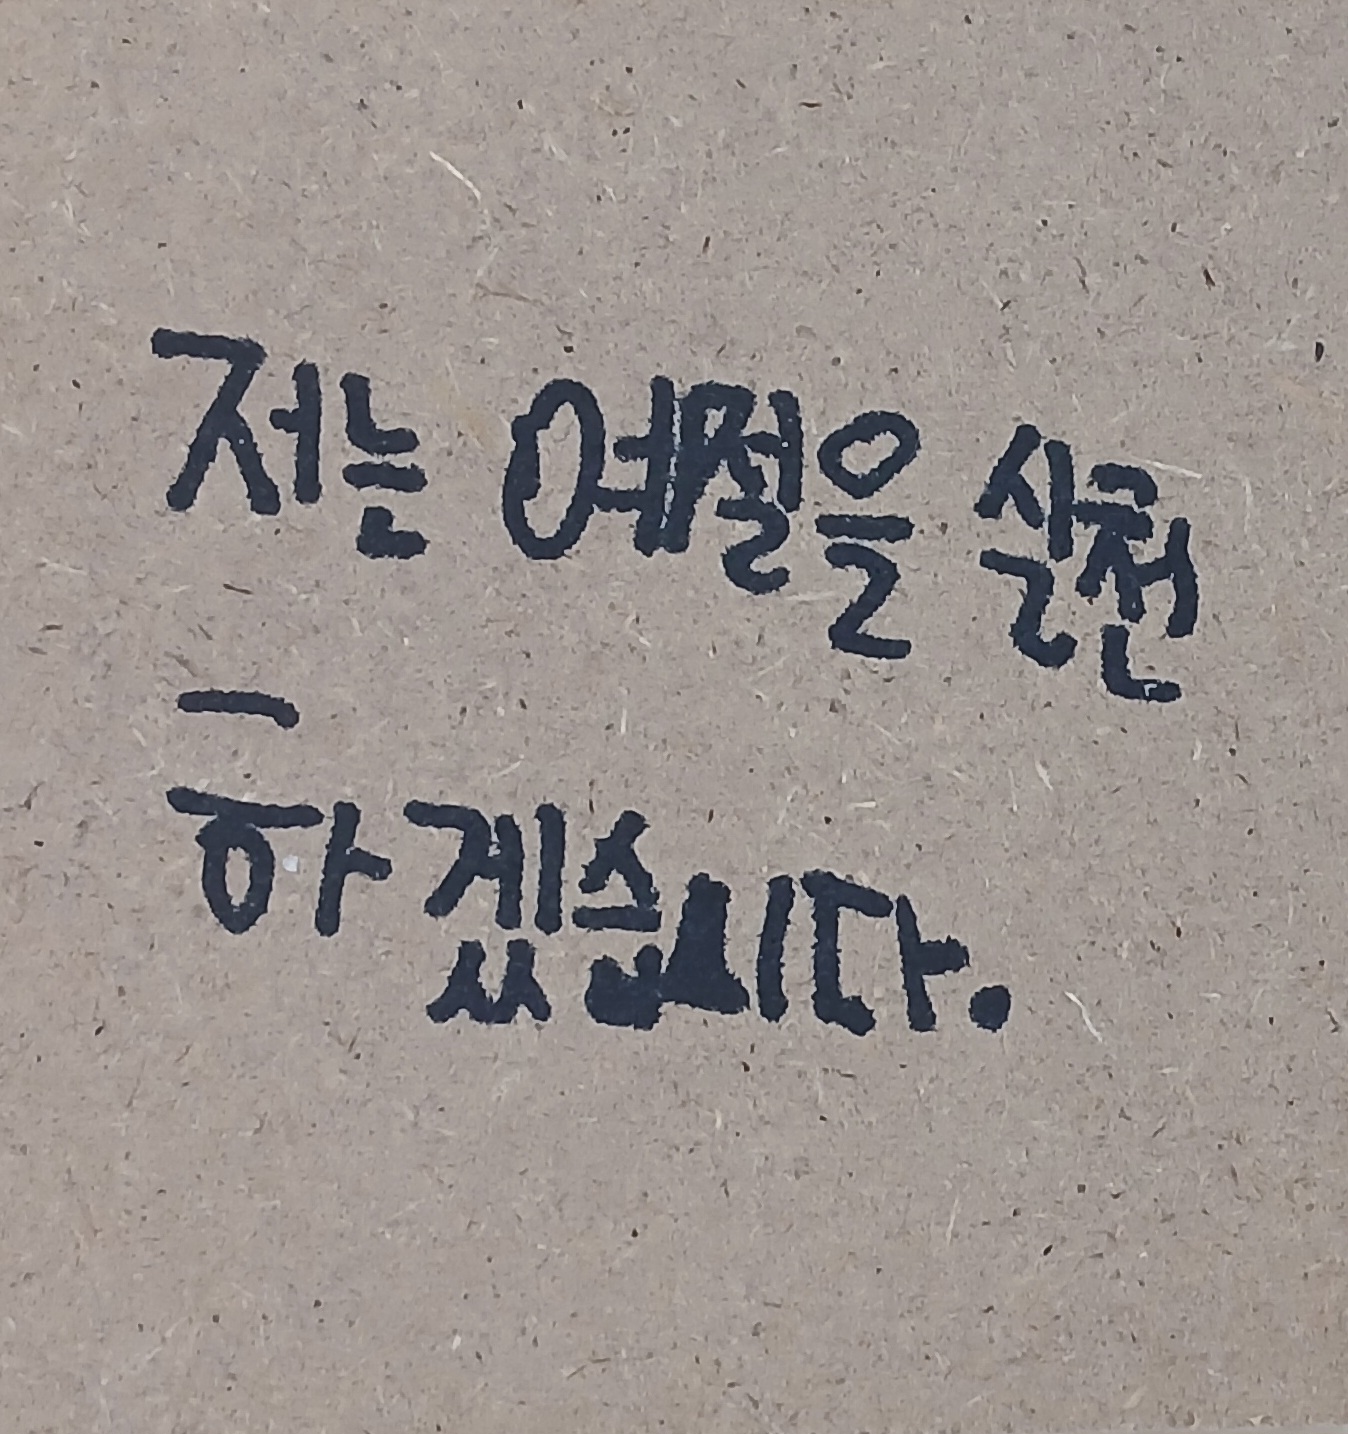 저는 예절을 실천
하겠습니다.